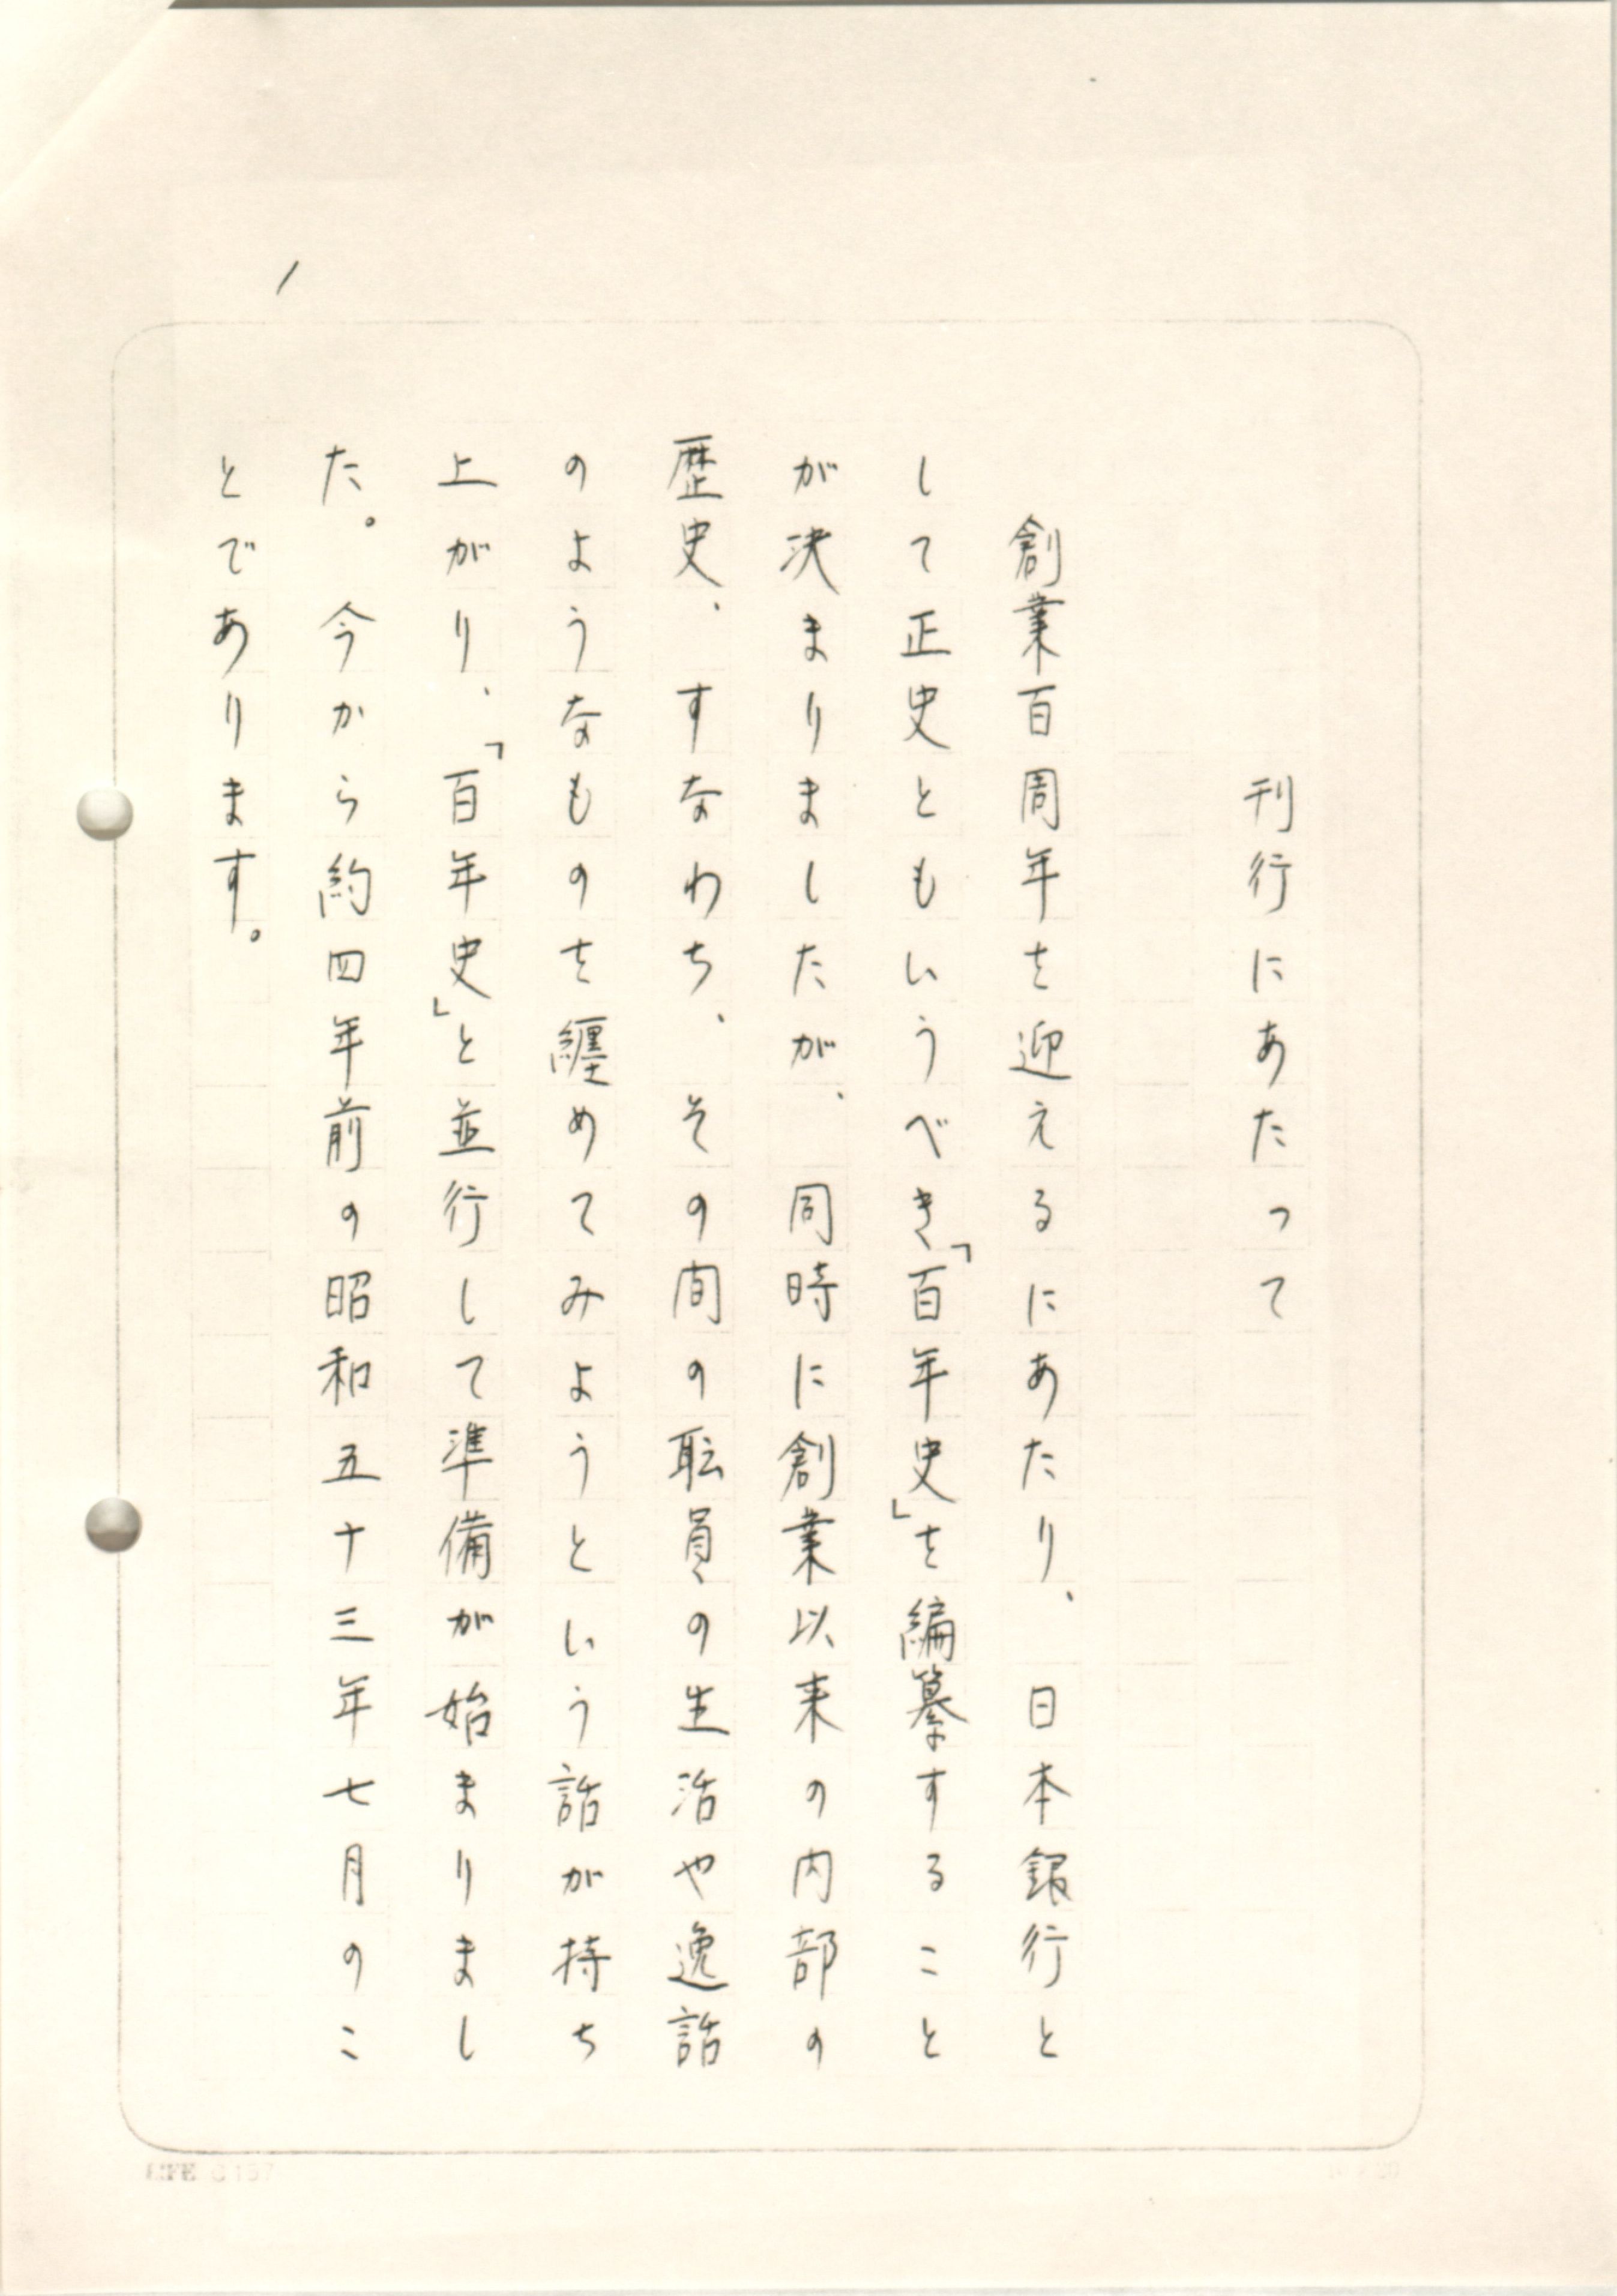 刊行にあたって
創業百周年を迎えるにあたり、日本銀行と
して正史ともいうべき「百年史」を編纂すること
が決まりましたが、同時に創業以来の内部の
歴史、すなわち、その間の耺員の生活や逸話
のようなものを纒めてみようという話が持ち
上がり、「百年史」と並行して準備が始まりまし
た。今から約四年前の昭和五十三年七月のこ
とであります。
1
LIFE C157